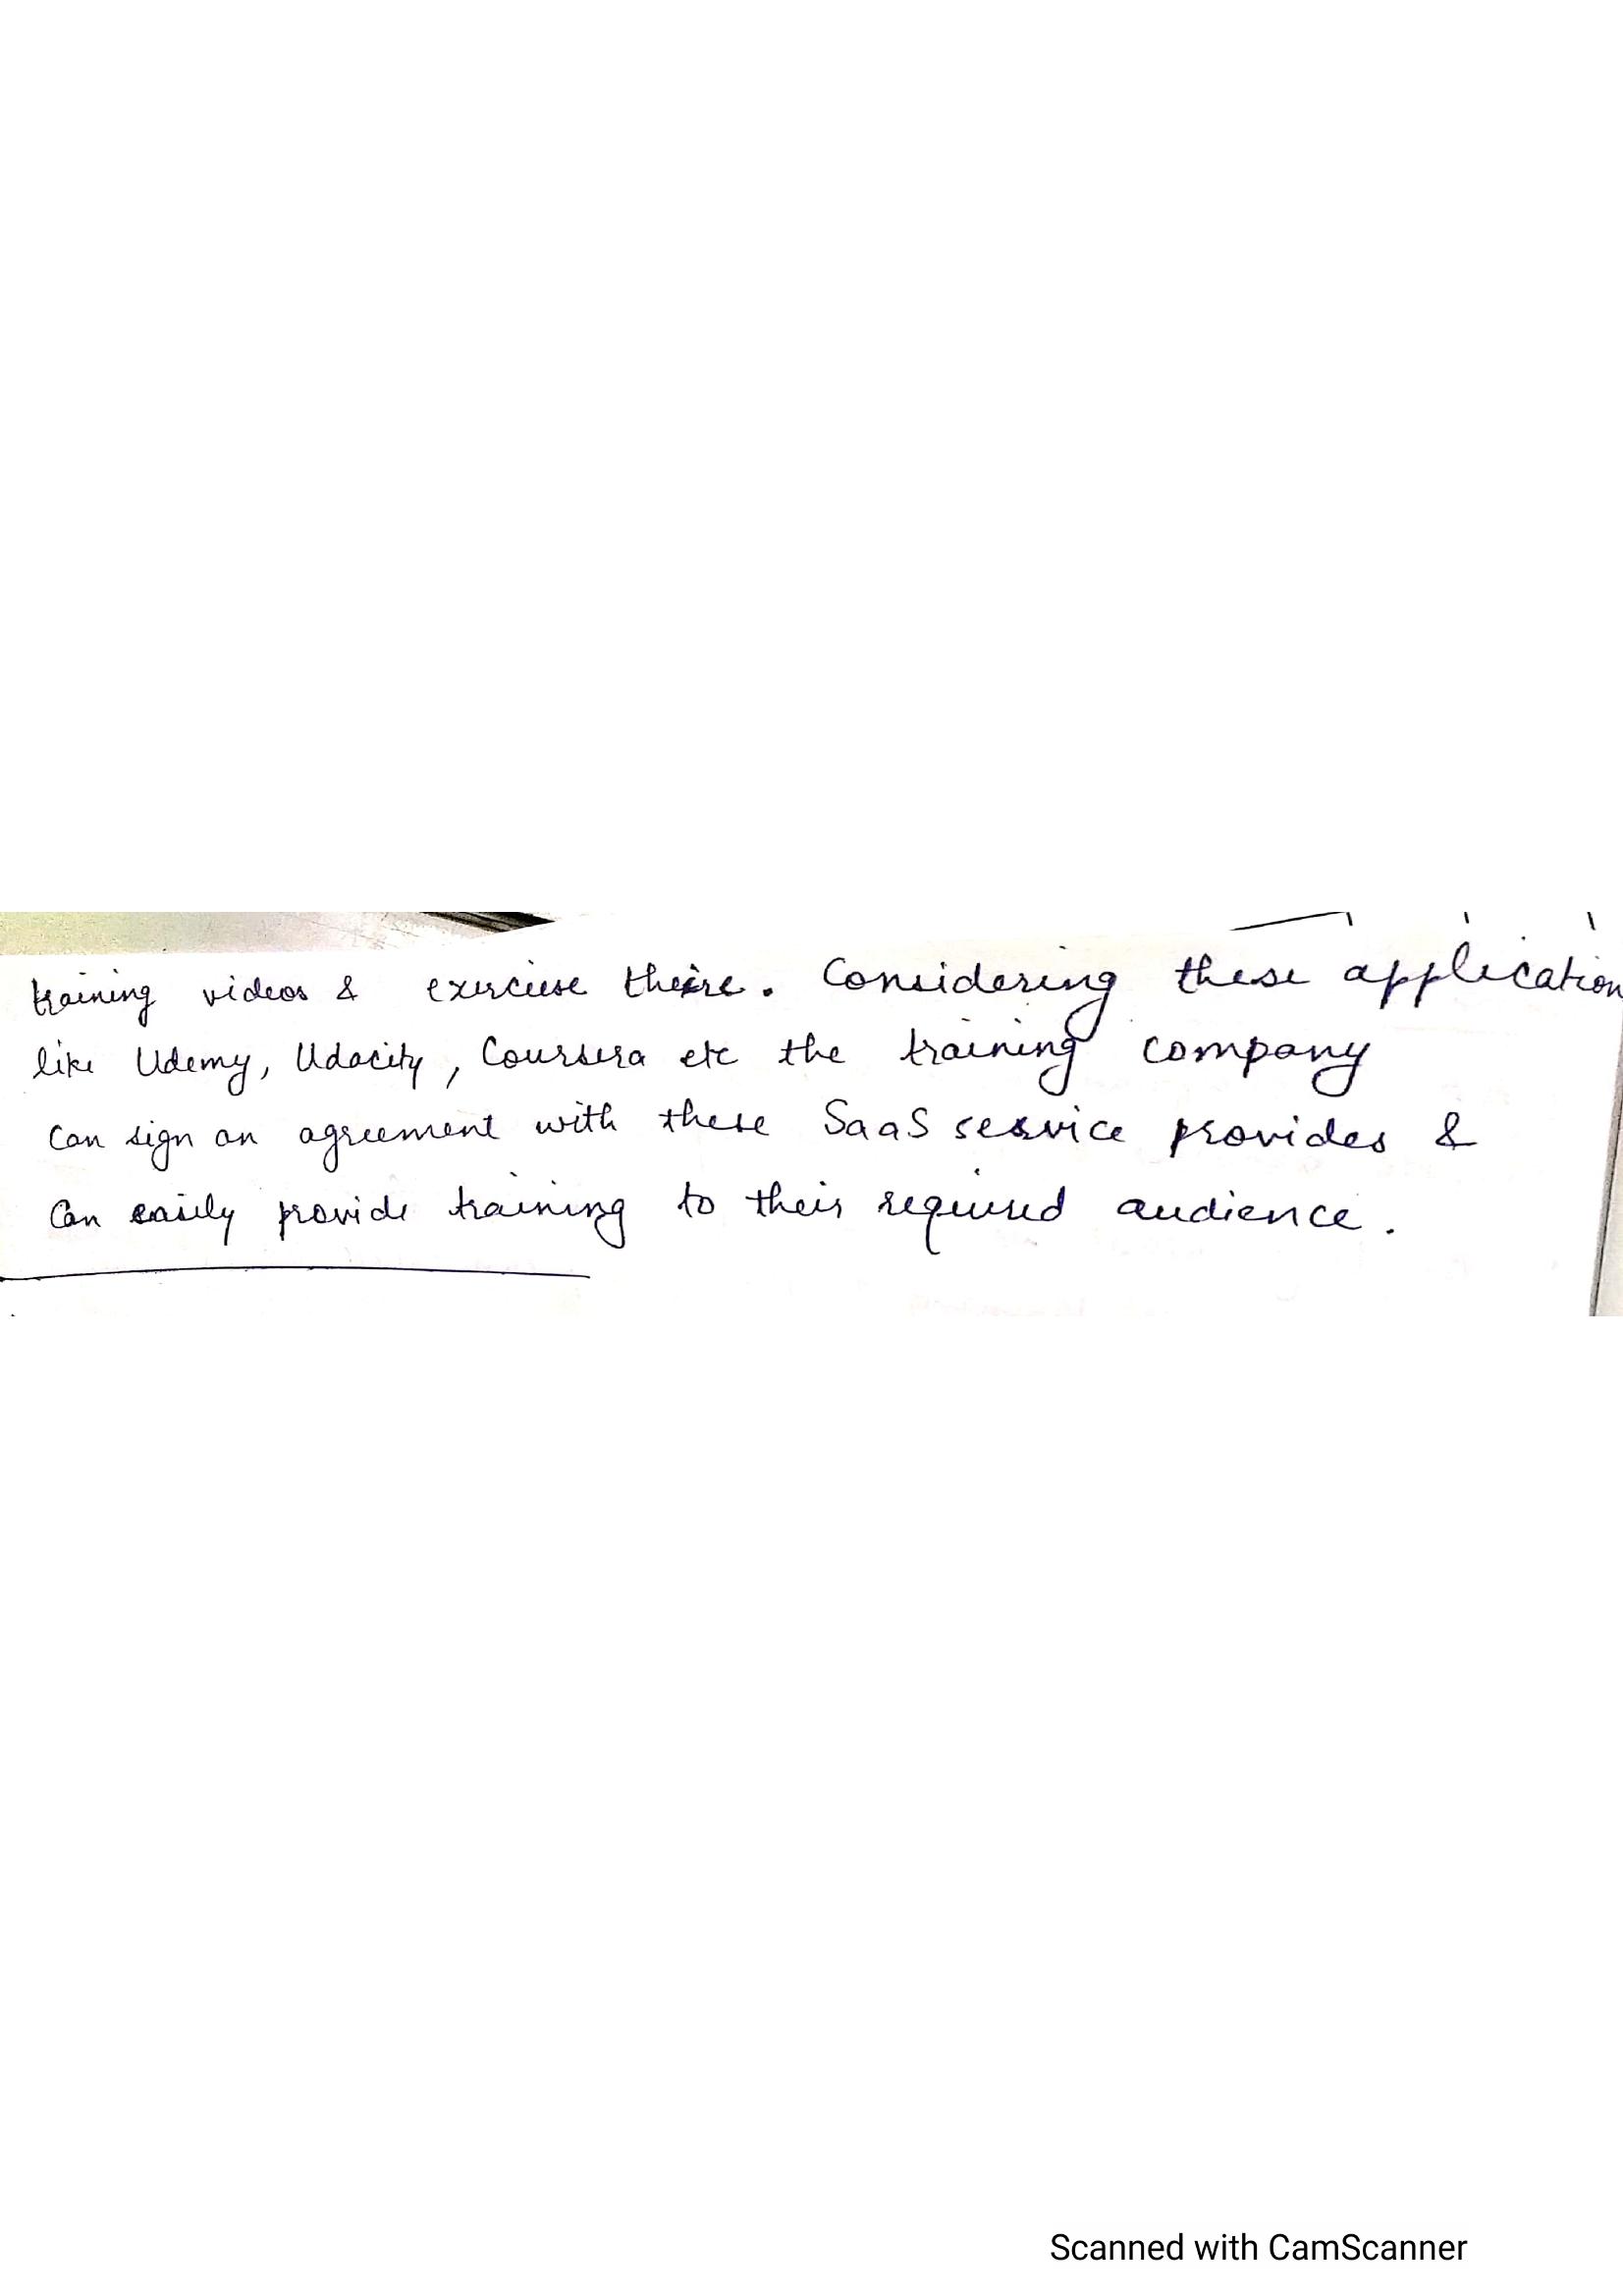 training videos & exerciese there. Considering these application
like Udemy, Udacity, Coursera etc the training company
can sign an agreement with these SaaS service provides &
can easily provide training to their required audience.
Scanned with CamScanner